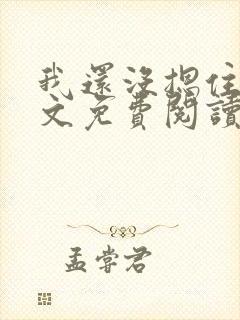 我還沒摁住
文免費閱讀
孟嘗君